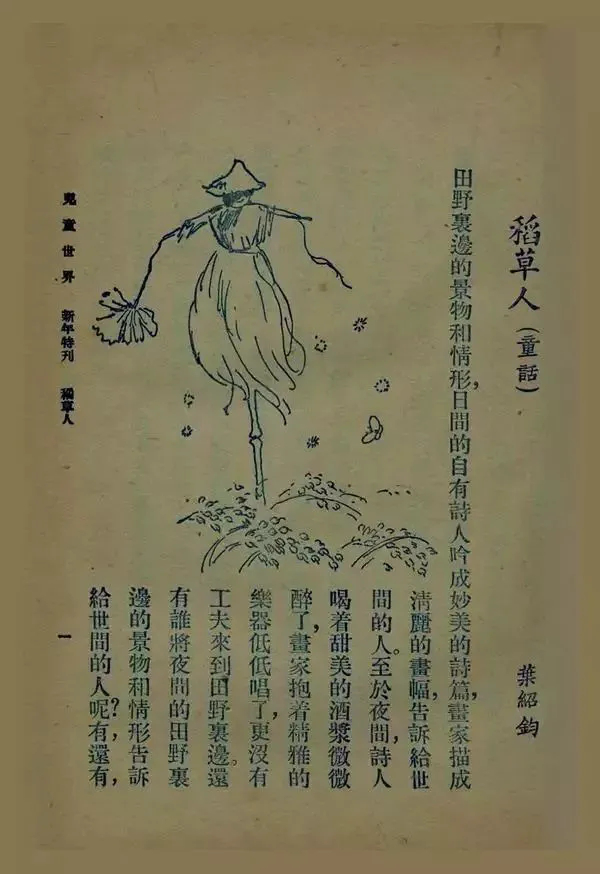 稻草人(童話)
葉紹鈞
田野裏邊的景物和情形,日間的自有詩人吟成妙美的詩篇,畫家描成
清麗的畫幅,告訴給世
間的人。至於夜間,詩人
喝着甜美的酒漿微微
醉了,畫家抱着精雅的
樂器低低唱了,更沒有
工夫來到田野裏邊。還
有誰將夜間的田野裏
邊的景物和情形告訴
給世間的人呢?有,還有,
兒童世界 新年特刊 稻草人
一